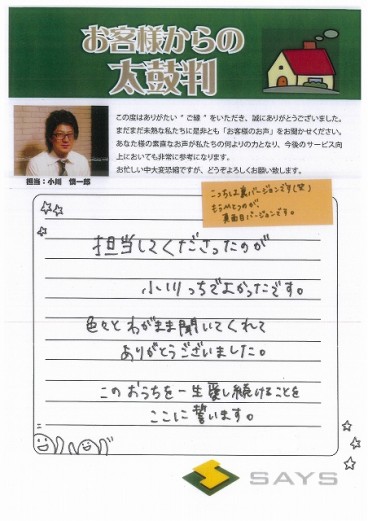 お客様からの
太鼓判
この度はありがたい"ご縁"をいただき、誠にありがとうございました。
まだまだ未熟な私たちに是非とも「お客様のお声」をお聞かせください。
あなた様の素直なお声が私たちの何よりの力となり、今後のサービス向
上においても非常に参考になります。
お忙しい中大変恐縮ですが、どうぞよろしくお願い致します。
担当：小川 慎一郎
こっちは裏バージョンです(笑)
もうひとつのが、
真面目バージョンです。
担当してくださったのが
小川っちでよかったです。
色々とわがまま聞いてくれて
ありがとうございました。
このおうちを一生愛し続けることを
ここに誓います。
SAYS